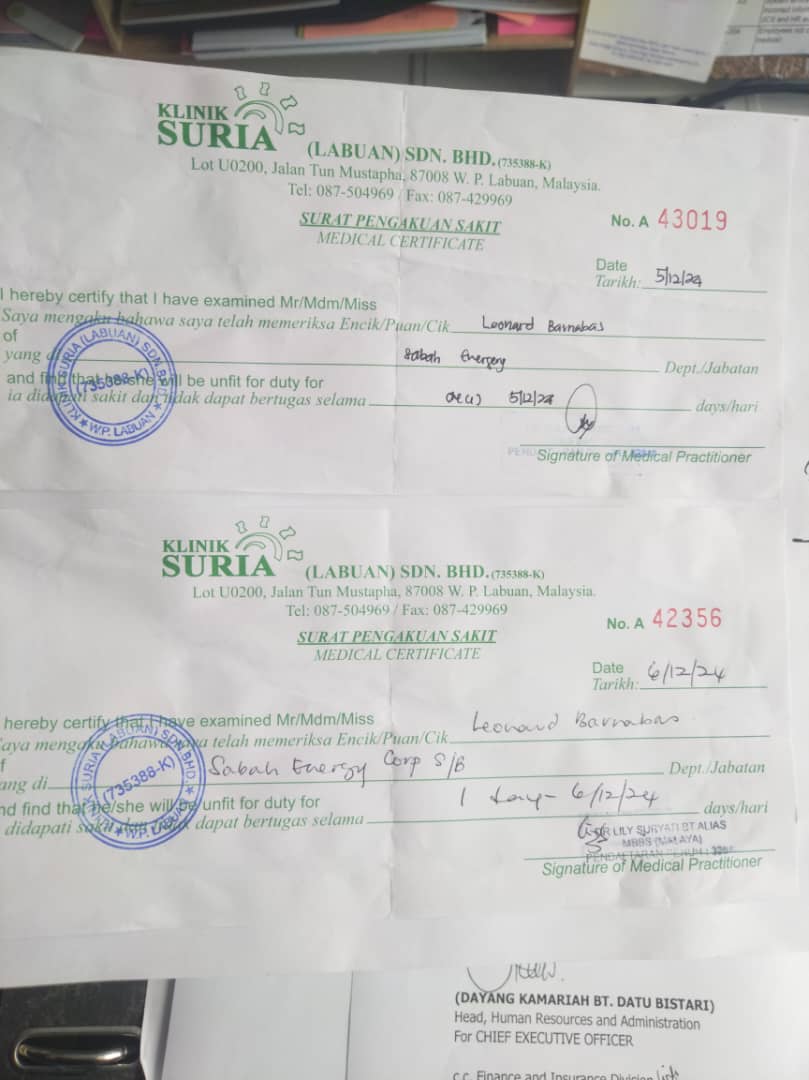 KLINIK
SURIA (LABUAN) SDN. BHD. (735388-K)
Lot U0200, Jalan Tun Mustapha, 87008 W. P. Labuan, Malaysia.
Tel: 087-504969 / Fax: 087-429969
SURAT PENGAKUAN SAKIT
MEDICAL CERTIFICATE
No. A 43019
Date
Tarikh: 5/12/24
I hereby certify that I have examined Mr/Mdm/Miss
Saya mengaku bahawa saya telah memeriksa Encik/Puan/Cik Leonard Barnabas
of
yang di Sabah Energy Dept./Jabatan
and find that he/she will be unfit for duty for
ia didapati sakit dan tidak dapat bertugas selama one(1) 5/12/24 days/hari
KLINIK SURIA (LABUAN) SDN. BHD. (735388-K) W.P. LABUAN
Signature of Medical Practitioner
KLINIK
SURIA (LABUAN) SDN. BHD. (735388-K)
Lot U0200, Jalan Tun Mustapha, 87008 W. P. Labuan, Malaysia.
Tel: 087-504969 / Fax: 087-429969
SURAT PENGAKUAN SAKIT
MEDICAL CERTIFICATE
No. A 42356
Date
Tarikh: 6/12/24
hereby certify that I have examined Mr/Mdm/Miss
aya mengaku bahawa saya telah memeriksa Encik/Puan/Cik Leonard Barnabas
f
ang di Sabah Energy Corp S/B Dept./Jabatan
nd find that he/she will be unfit for duty for
didapati sakit dan tidak dapat bertugas selama 1 day - 6/12/24 days/hari
KLINIK SURIA (LABUAN) SDN BHD (735388-K) W.P. LABUAN
DR LILY SURYATI BT ALIAS
MBBS (MALAYA)
Signature of Medical Practitioner
(DAYANG KAMARIAH BT. DATU BISTARI)
Head, Human Resources and Administration
For CHIEF EXECUTIVE OFFICER
c.c. Finance and Insurance Division